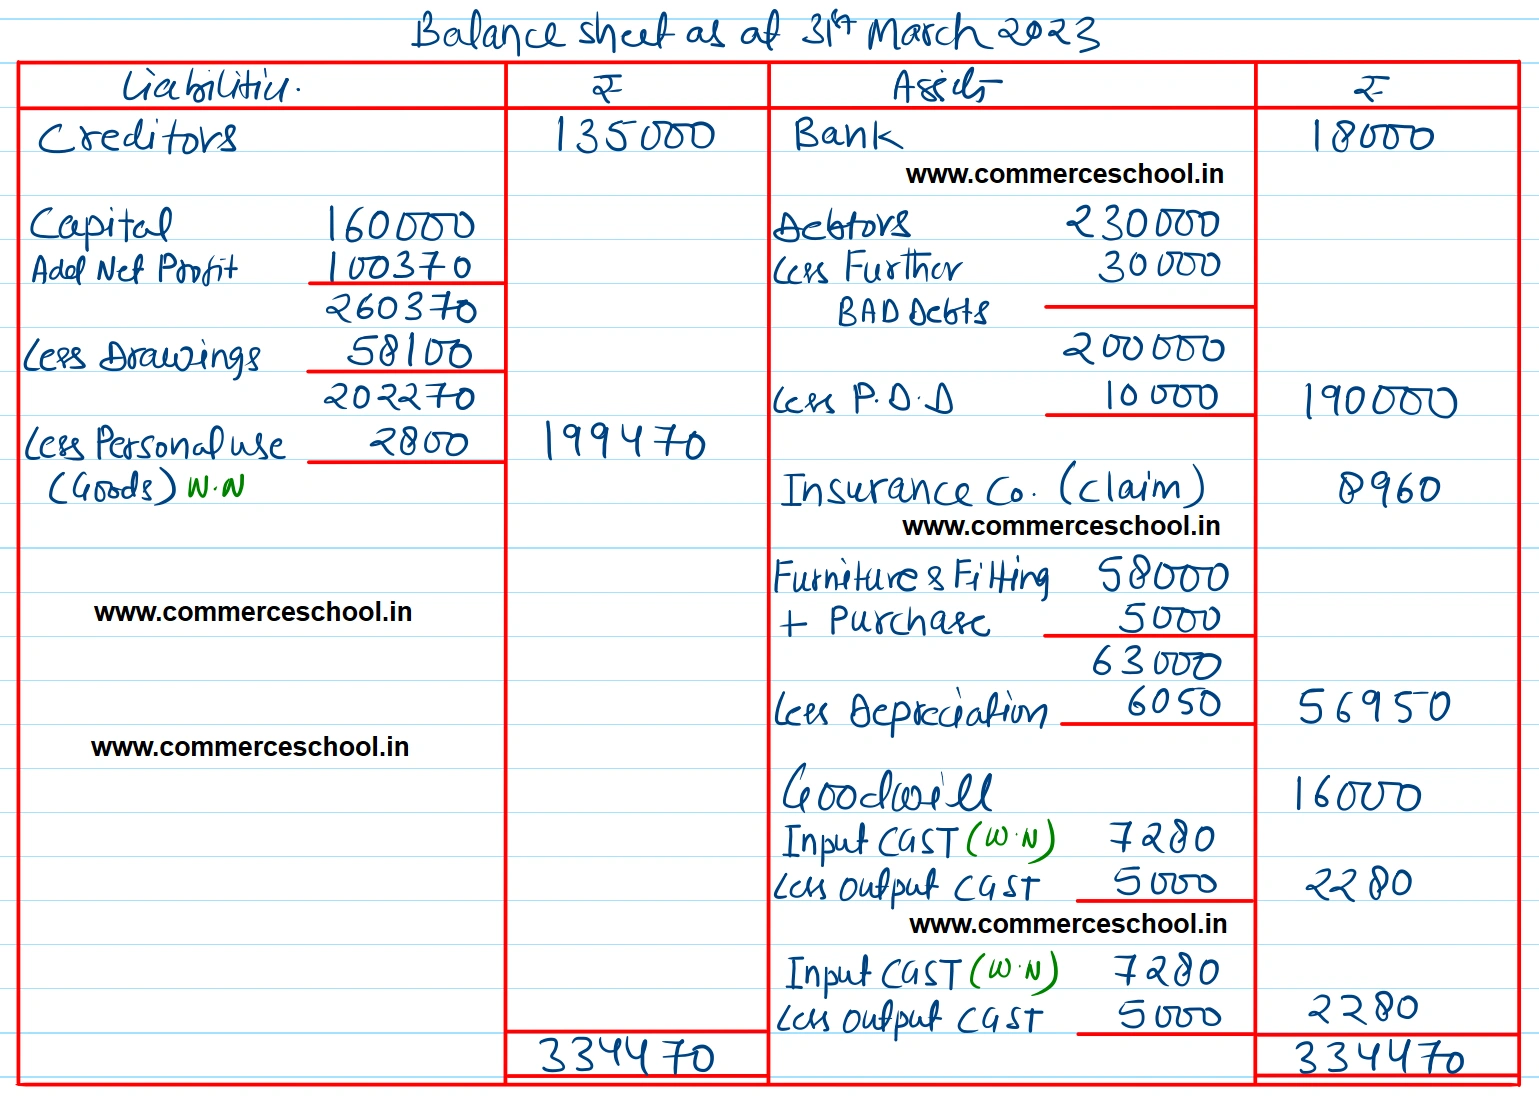 Balance sheet as at 31st March 2023
Liabilities. ₹ Assets ₹
Creditors 135000 Bank 18000
www.commerceschool.in
Capital 160000 Debtors 230000
Add Net Profit 100370 Less Further 30000
260370 BAD Debts
Less Drawings 58100 200000
202270 Less P.D.D 10000 190000
Less Personal use 2800 199470
(Goods) W.N Insurance Co. (claim) 8960
www.commerceschool.in
Furniture & Fitting 58000
www.commerceschool.in + Purchase 5000
63000
Less Depreciation 6050 56950
www.commerceschool.in
Goodwill 16000
Input CGST (W.N) 7280
Less Output CGST 5000 2280
www.commerceschool.in
Input CGST (W.N) 7280
Less Output CGST 5000 2280
334470 334470